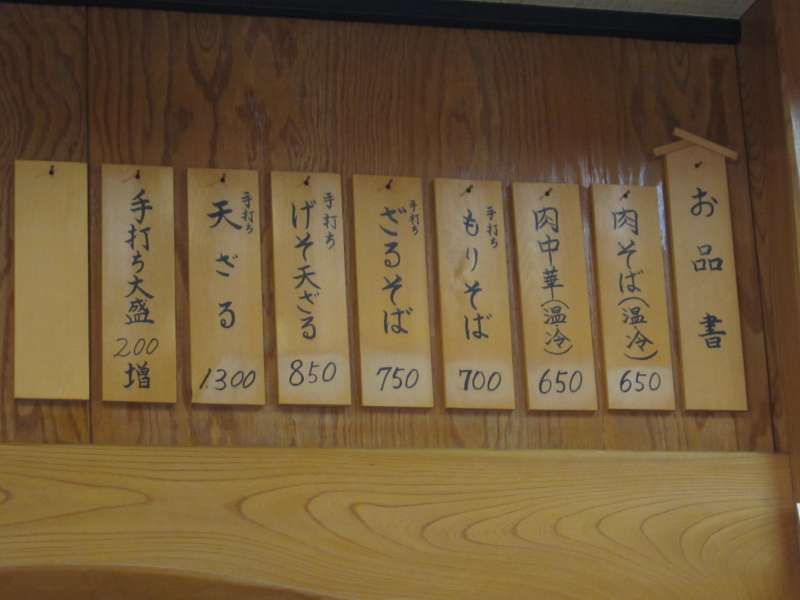 お品書
肉そば(温冷)
650
肉中華(温冷)
650
手打ち
もりそば
700
手打ち
ざるそば
750
手打ち
げそ天ざる
850
手打ち
天ざる
1.300
手打ち大盛
200
増